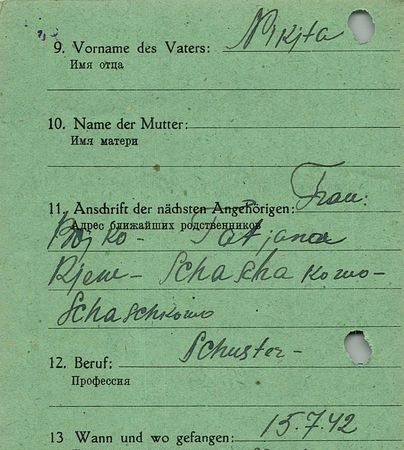 9. Vorname des Vaters: Nikita
Имя отца
10. Name der Mutter:
Имя матери
11. Anschrift der nächsten Angehörigen: Frau:
Адрес ближайших родственников
Bojko - Tatjana
Kjew - Schaschakowo -
Schaschkowo
12. Beruf: Schuster -
Профессия
13 Wann und wo gefangen: 15.7.42